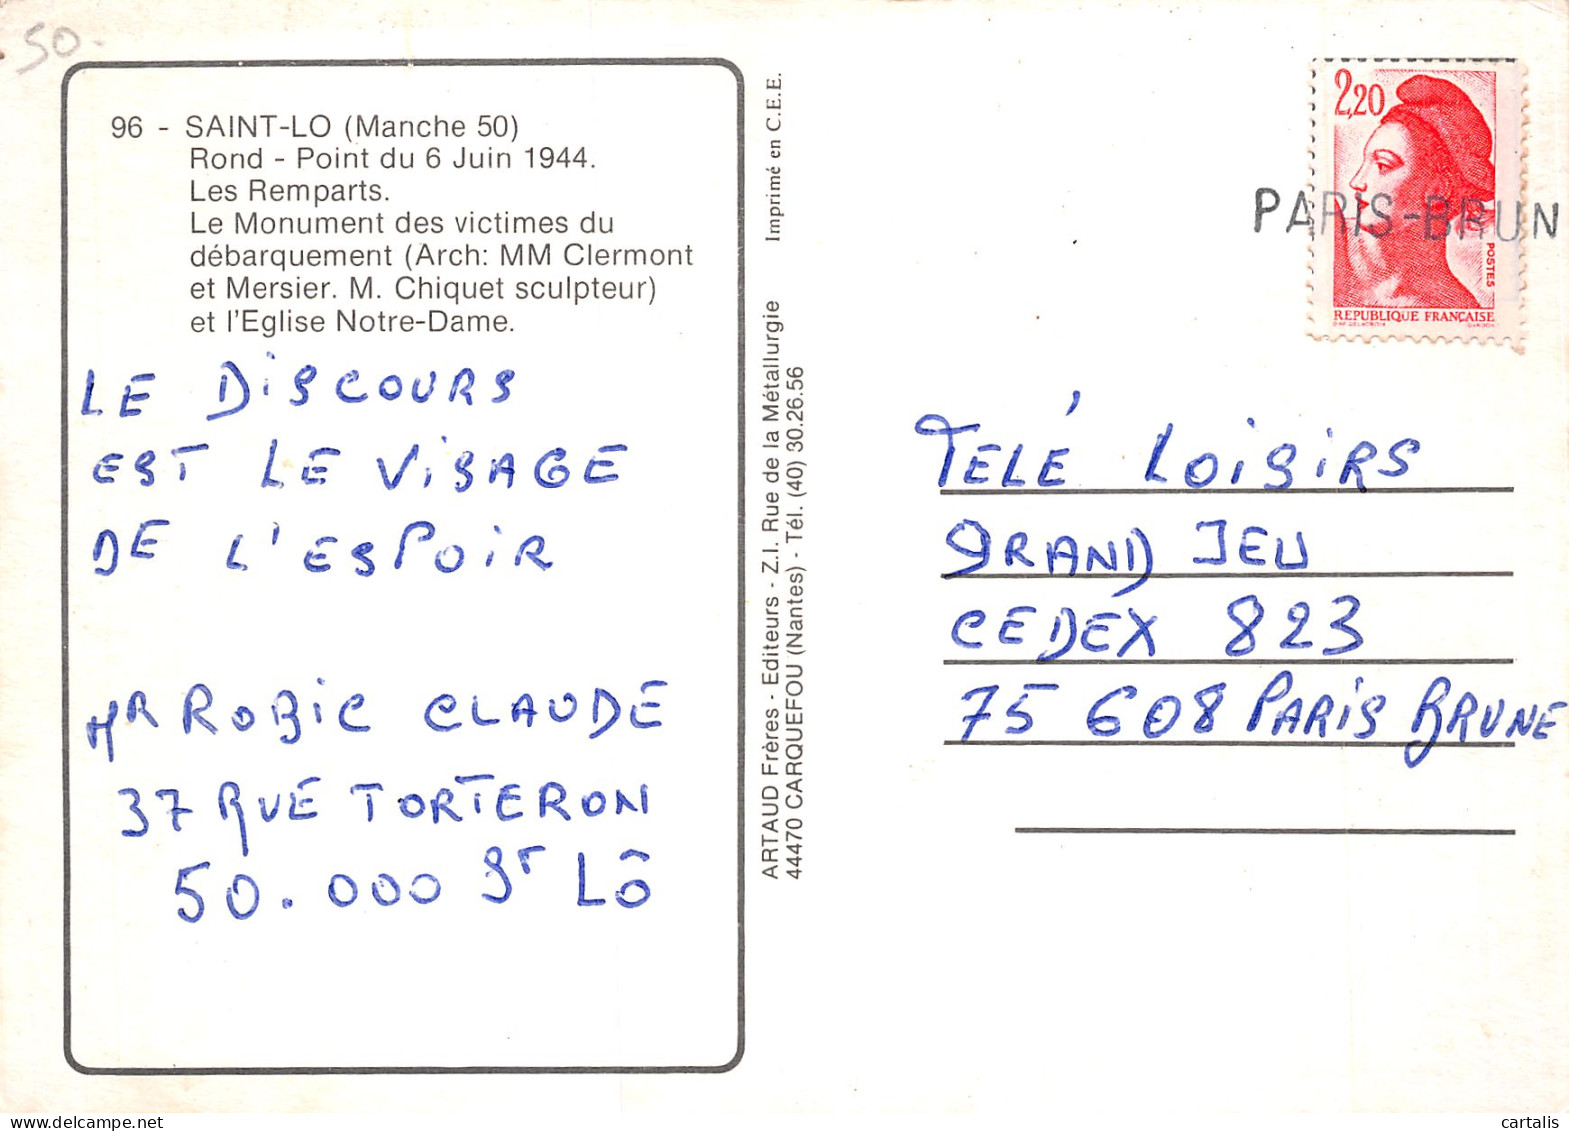 50.
96 - SAINT-LO (Manche 50)
Rond - Point du 6 Juin 1944.
Les Remparts.
Le Monument des victimes du
débarquement (Arch: MM Clermont
et Mersier. M. Chiquet sculpteur)
et l'Eglise Notre-Dame.
LE DISCOURS
EST LE VISAGE
DE L'ESPOIR
MR ROBIC CLAUDE
37 RUE TORTERON
50.000 ST LÔ
ARTAUD Frères - Editeurs - Z.I. Rue de la Métallurgie
44470 CARQUEFOU (Nantes) - Tél. (40) 30.26.56
Imprimé en C.E.E.
2,20
POSTES
REPUBLIQUE FRANÇAISE
PARIS-BRUN
TELÉ LOISIRS
GRAND JEU
CEDEX 823
75 608 PARIS BRUNE
delcampe.net
cartalis